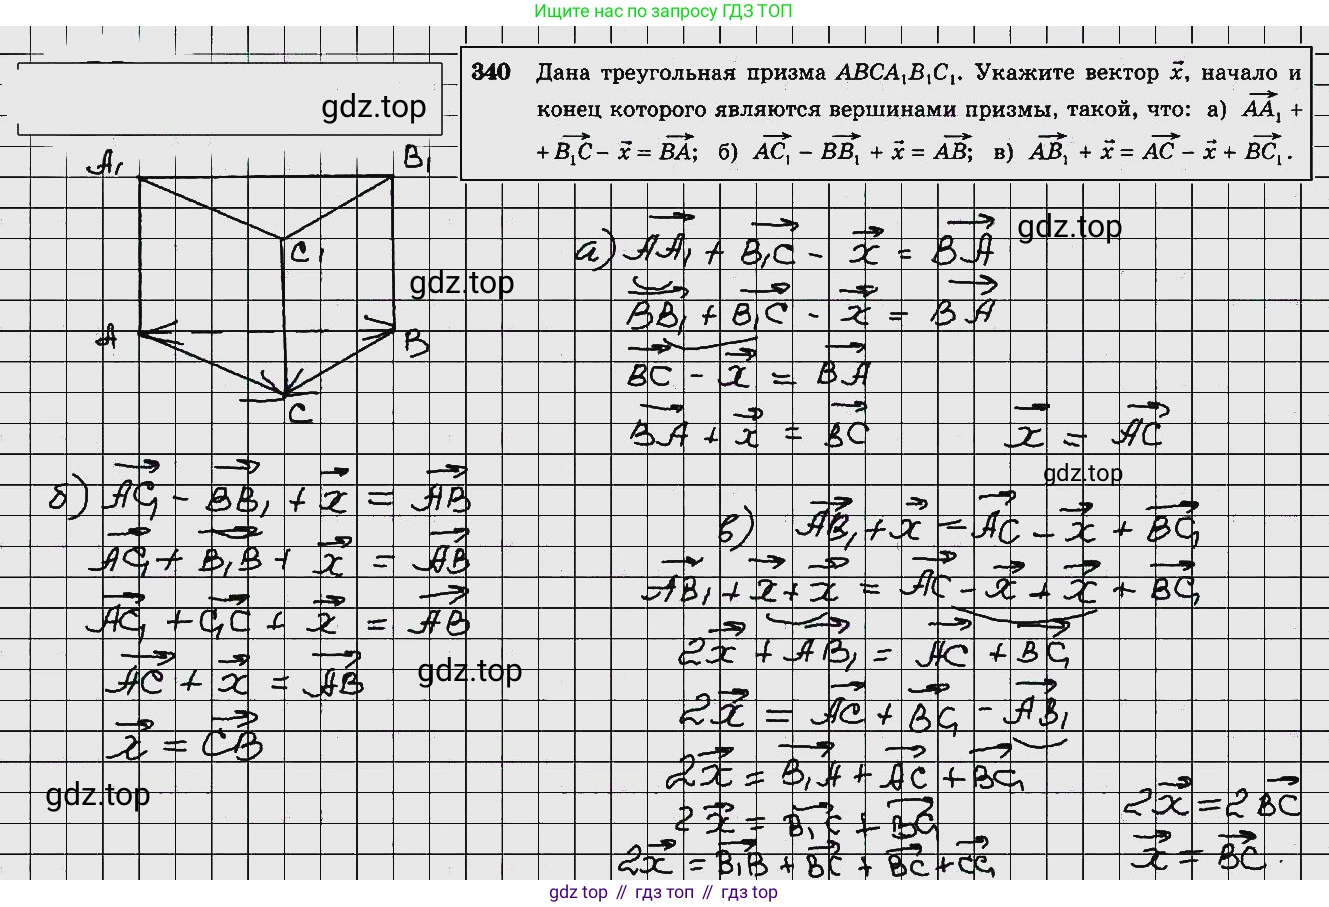 Ищите нас по запросу ГДЗ ТОП
gdz.top
340 Дана треугольная призма ABCA₁B₁C₁. Укажите вектор x⃗, начало и
конец которого являются вершинами призмы, такой, что: а) AA₁ +
+ B₁C − x⃗ = BA; б) AC₁ − BB₁ + x⃗ = AB; в) AB₁ + x⃗ = AC − x⃗ + BC₁.
A₁
B₁
C₁
A
B
C
gdz.top
gdz.top
а) AA₁ + B₁C − x⃗ = BA
BB₁ + B₁C − x⃗ = BA
BC − x⃗ = BA
BA + x⃗ = BC
x⃗ = AC
gdz.top
б) AC₁ − BB₁ + x⃗ = AB
AC₁ + B₁B + x⃗ = AB
AC₁ + C₁C + x⃗ = AB
AC + x⃗ = AB
x⃗ = CB
gdz.top
gdz.top
в) AB₁ + x⃗ = AC − x⃗ + BC₁
AB₁ + x⃗ + x⃗ = AC − x⃗ + x⃗ + BC₁
2x⃗ + AB₁ = AC + BC₁
2x⃗ = AC + BC₁ − AB₁
2x⃗ = B₁A + AC + BC₁
2x⃗ = B₁C + BC₁
2x⃗ = B₁B + BC + BC + CC₁
2x⃗ = 2BC
x⃗ = BC.
gdz top // гдз топ // gdz top